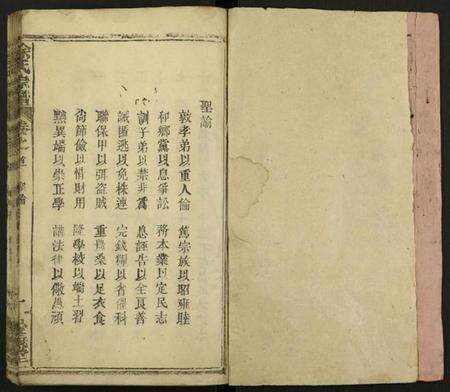 聖諭
敦孝弟以重人倫　篤宗族以昭雍睦
和鄉黨以息爭訟　務本業以定民志
訓子弟以禁非為　息誣告以全良善
誡匿逃以免株連　完錢糧以省催科
聯保甲以弭盜賊　重農桑以足衣食
尚節儉以惜財用　隆學校以端士習
黜異端以崇正學　講法律以儆愚頑
氏宗譜　卷之首